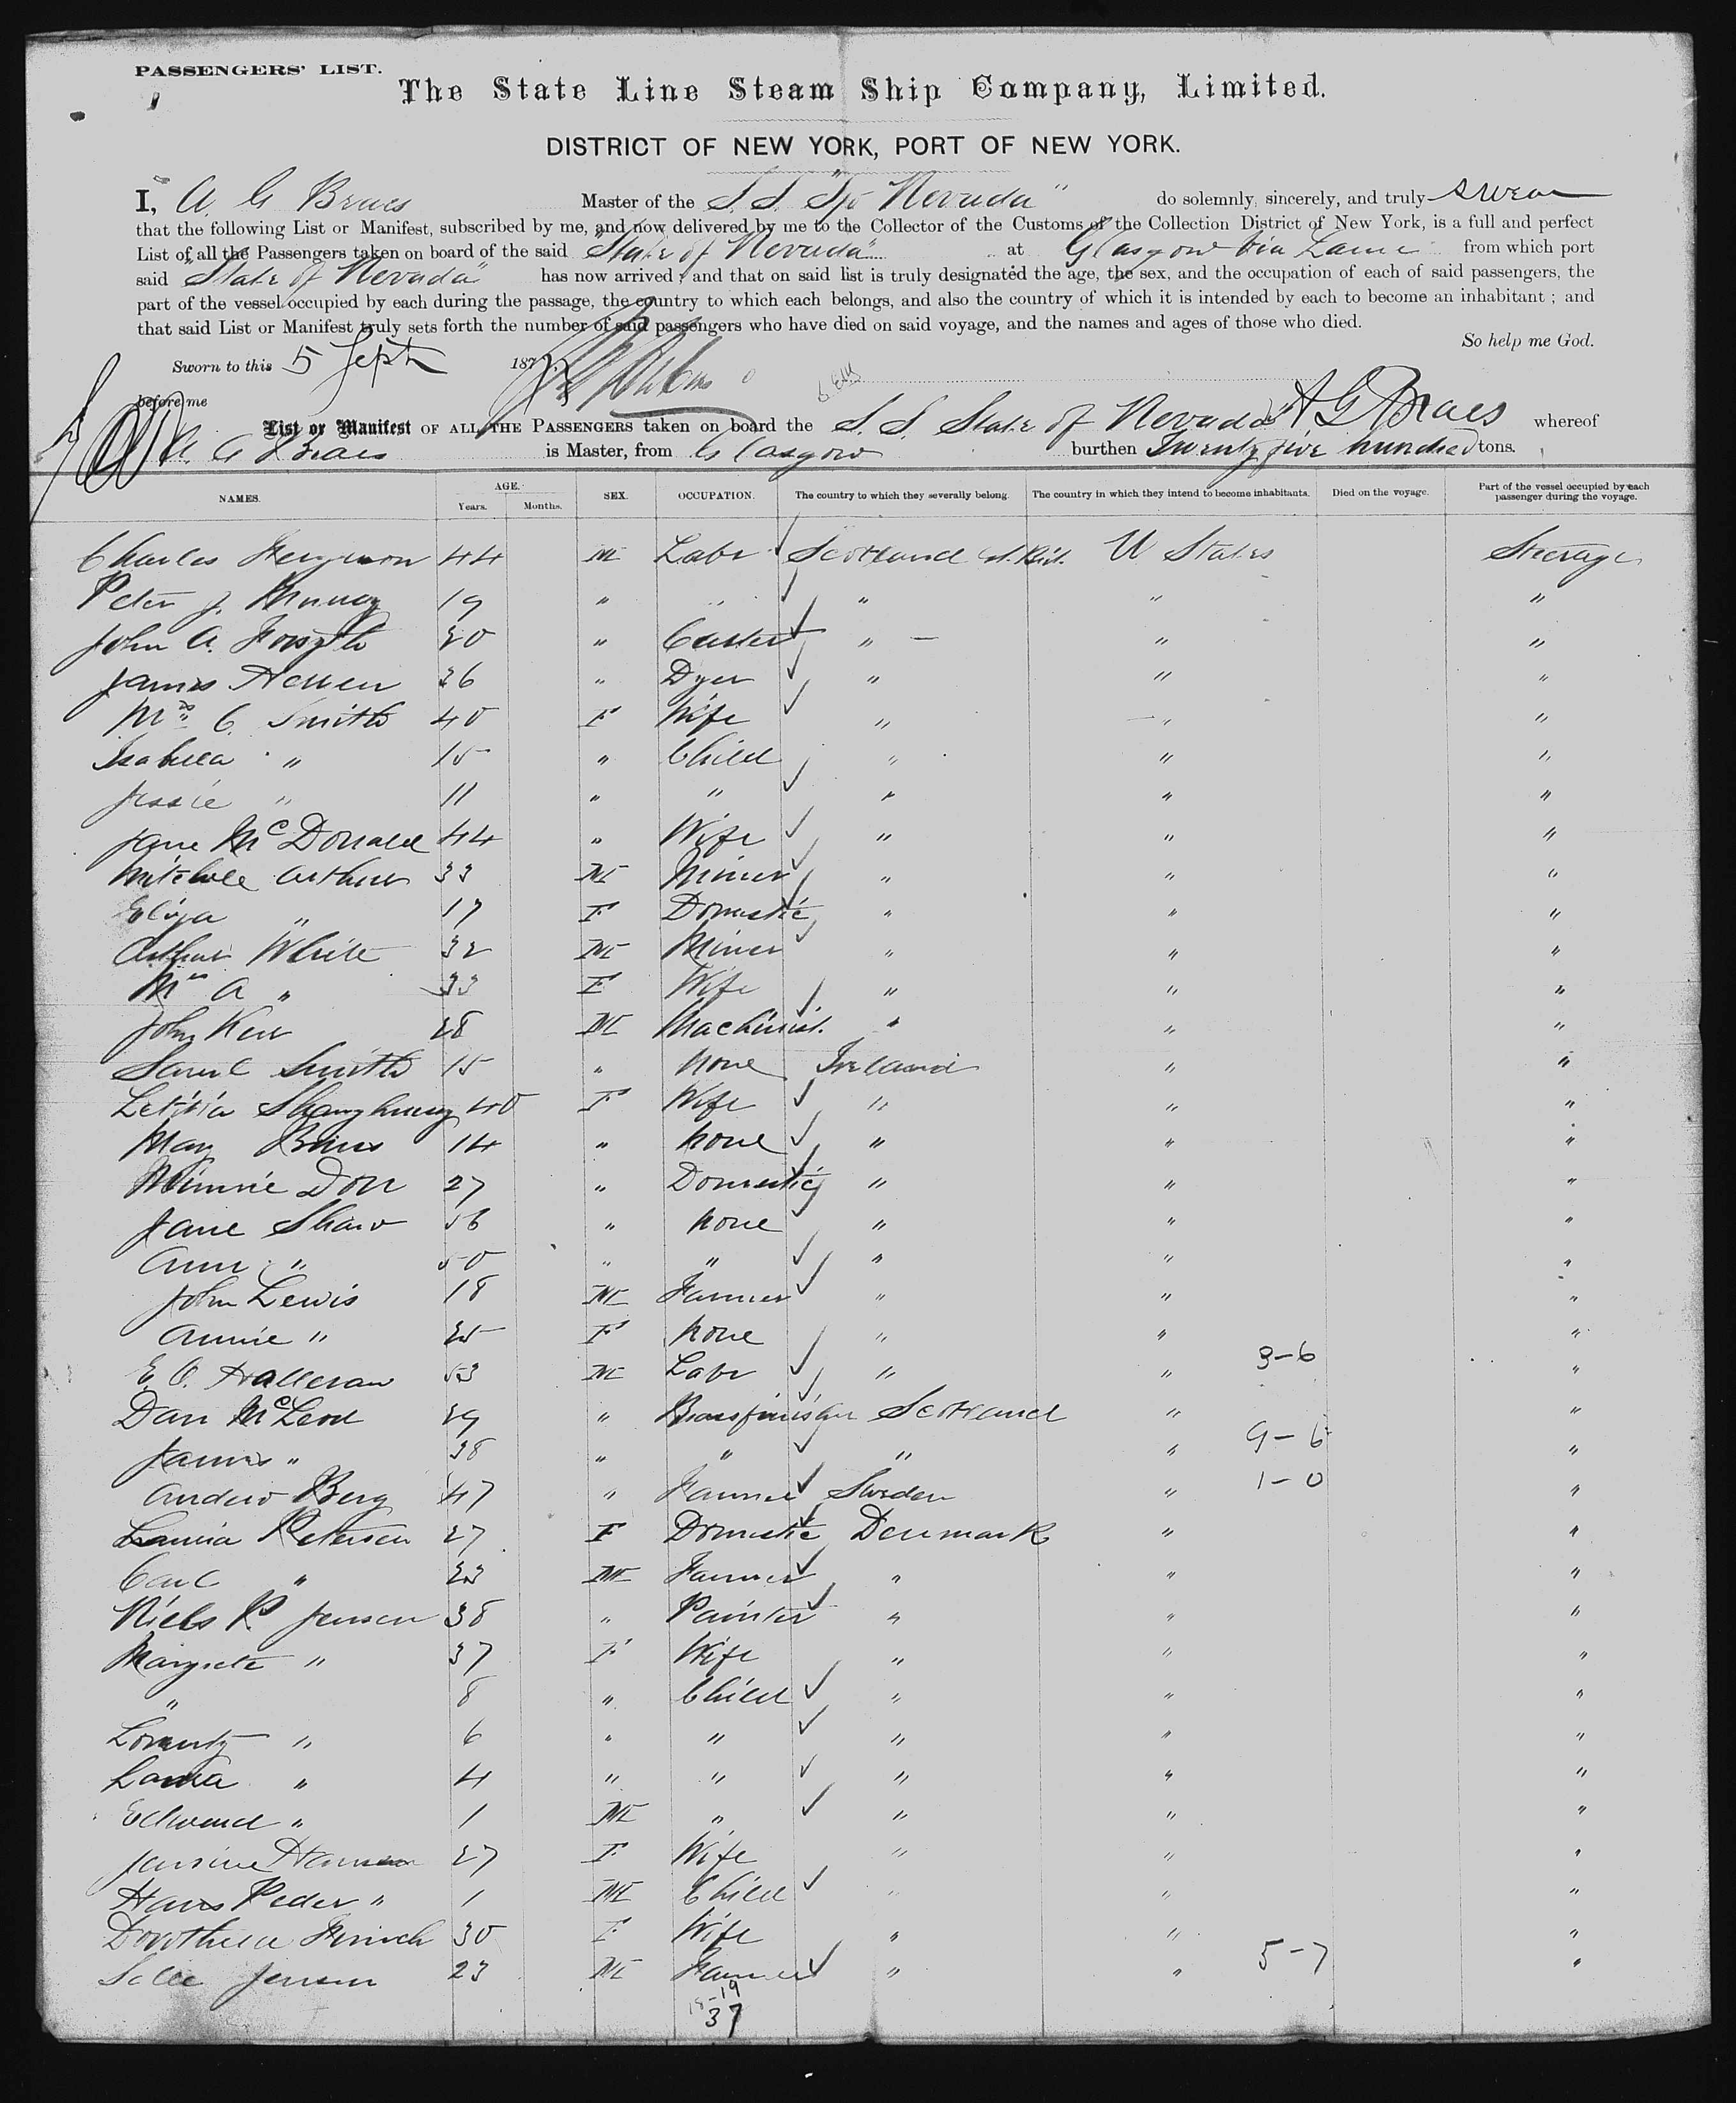 PASSENGERS' LIST.
The State Line Steam Ship Company, Limited.
DISTRICT OF NEW YORK, PORT OF NEW YORK.
I, A. G Braes Master of the S.S. "S/o Nevada" do solemnly, sincerely, and truly swear
that the following List or Manifest, subscribed by me, and now delivered by me to the Collector of the Customs of the Collection District of New York, is a full and perfect
List of all the Passengers taken on board of the said "State of Nevada" at Glasgow via Larne from which port
said "State of Nevada" has now arrived; and that on said list is truly designated the age, the sex, and the occupation of each of said passengers, the
part of the vessel occupied by each during the passage, the country to which each belongs, and also the country of which it is intended by each to become an inhabitant; and
that said List or Manifest truly sets forth the number of said passengers who have died on said voyage, and the names and ages of those who died.
So help me God.
Sworn to this 5 Sept 187
before me
List or Manifest OF ALL THE PASSENGERS taken on board the S.S. State of Nevada A G Braes whereof
A G Braes is Master, from Glasgow burthen Twenty five hundred tons.
NAMES. AGE. Years. Months. SEX. OCCUPATION. The country to which they severally belong. The country in which they intend to become inhabitants. Died on the voyage. Part of the vessel occupied by each passenger during the voyage.
Charles Ferguson 44 M Labr Scotland U States Steerage
Peter J. Murray 19 " " " " "
John A. Forsyth 20 " " — " "
James 26 " Dyer " " "
Mrs C. Smith 40 F Wife " " "
Isabella " 15 " Child " " "
Jessie " 11 " " " " "
Jane McDonald 44 " Wife " " "
Mitchell Arthur 33 M Miner " " "
Eliza " 17 F Domestic " " "
Arthur White 32 M Miner " " "
Mrs A " 33 F Wife " " "
John Kerr 28 M Machinist " " "
Saml Smith 15 " None Ireland " "
Letitia Shaughnesy 40 F Wife " " "
May 14 " None " " "
Minnie Dorr 27 " Domestic " " "
Jane Shaw 56 " None " " "
Ann " 50 " " " " "
John Lewis 18 M Farmer " " "
Annie " 25 F None " " "
E. O. Halleran 53 M Labr " " 3-6 "
Dan McLeod 29 " Brassfinisher Scotland " "
James " 38 " " " " 9-6 "
Andrew Berg 47 " Farmer Sweden " 1-0 "
Petersen 27 F Domestic Denmark " "
Carl " 23 M Farmer " " "
Niels P. Jensen 38 " Painter " " "
Margrete " 37 F Wife " " "
" 8 " Child " " "
Lorentz " 6 " " " " "
Laura " 4 " " " " "
Edward " 1 M " " " "
Jensine Hansen 27 F Wife " " "
Hans Peder " 1 M Child " " "
Dorothea 30 F Wife " " "
Jensen 23 M Farmer " " 5-7 "
18-19
37